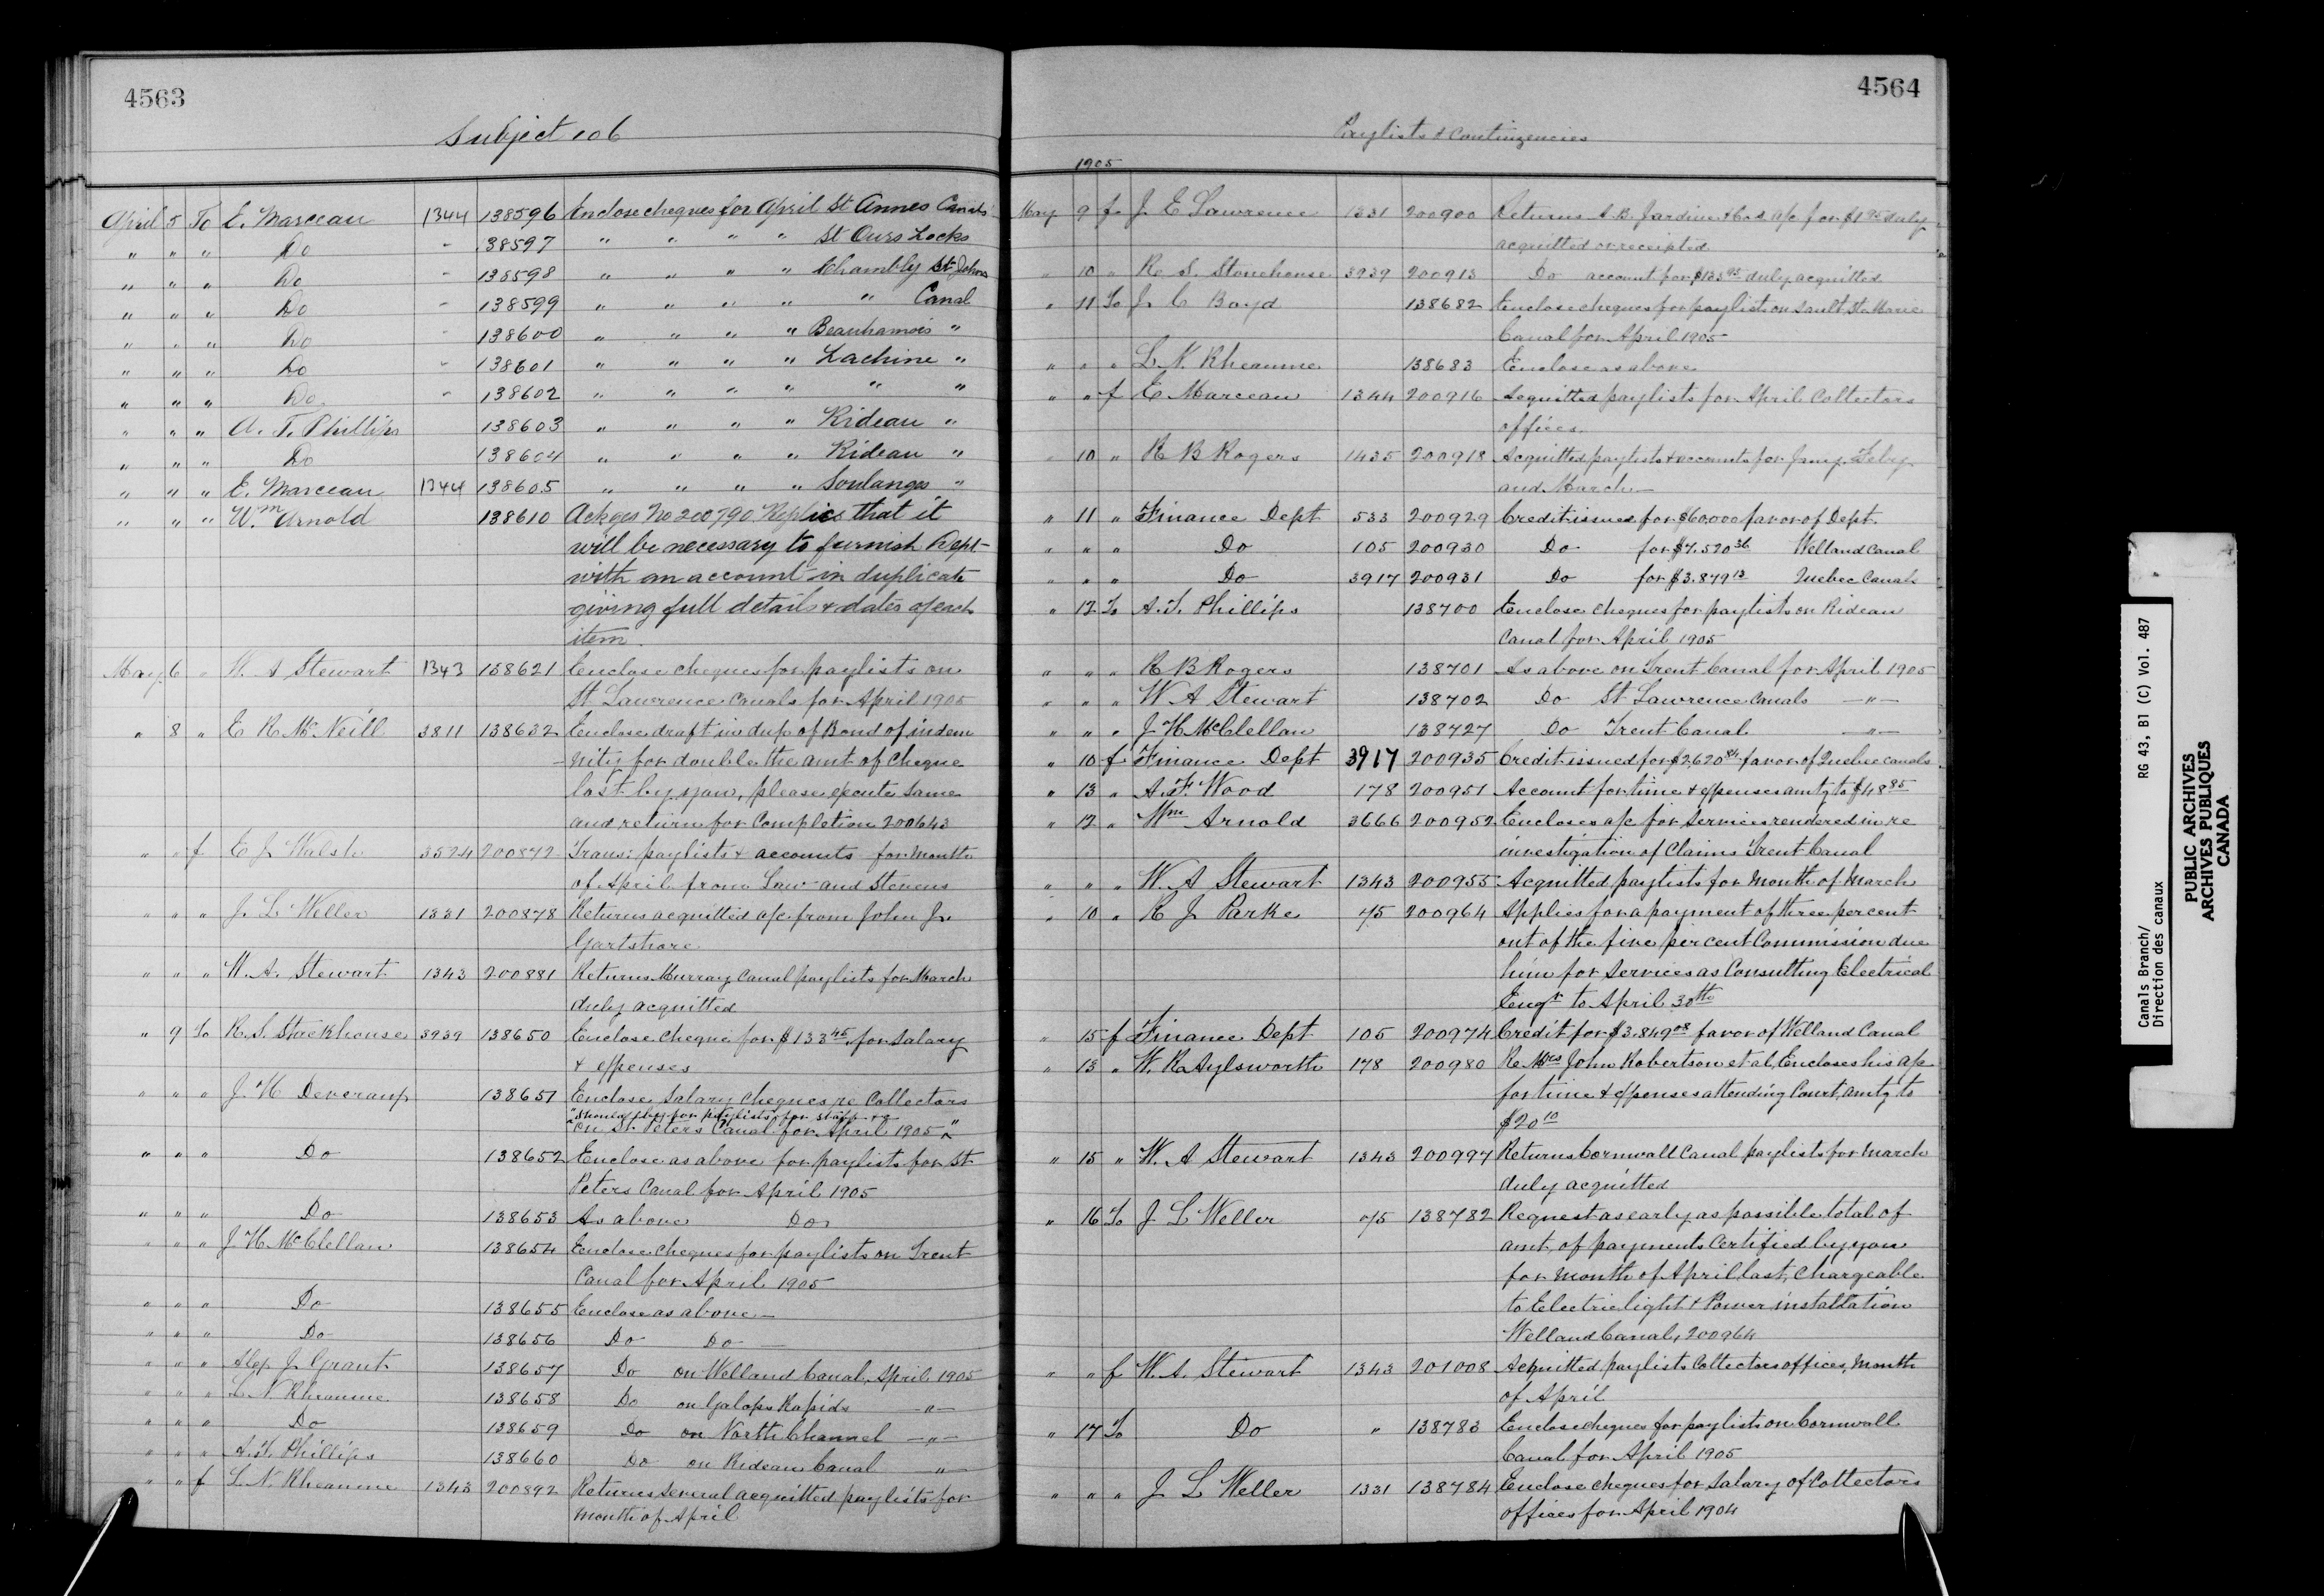 4563
Subject 106
April 5 To E. Marceau 1344 138596 Enclose cheques for April St Annes Canals
" " " Do " 138597 " " " " St Ours Locks
" " " Do " 138598 " " " " Chambly St Johns
" " " Do " 138599 " " " " " Canal
" " " Do " 138600 " " " " Beauharnois "
" " " Do " 138601 " " " " Lachine "
" " " Do " 138602 " " " " " "
" " " A. T. Phillips 138603 " " " " Rideau "
" " " Do 138604 " " " " Rideau "
" " " E. Marceau 1344 138605 " " " " Soulanges "
" " " Wm Arnold 138610 Ackges No 200790 Replies that it
will be necessary to furnish Dept
with an account in duplicate
giving full details & dates of each
item
May 6 " W. A Stewart 1343 138621 Enclose cheques for paylists on
St Lawrence Canals for April 1905
" 8 " E R McNeill 3811 138632 Enclose draft in dup of Bond of indem
nity for double the amt of cheque
lost by you, please execute same
and return for completion 200643
" " f E J Walsh 3524 200872 Trans: paylists & accounts for month
of April from Law and Stevens
" " " J. L Weller 1331 200878 Returns acquitted a/c from John J.
Gartshore
" " " W. A. Stewart 1343 200881 Returns Murray Canal paylists for March
duly acquitted
" 9 To R. S. Stackhouse 3939 138650 Enclose cheque for $133 45 for salary
& expenses
" " " J. H Deveraux 138651 Enclose salary cheques re Collectors
on St Peters Canal for April 1905
" " " Do 138652 Enclose as above for paylists for St
Peters Canal for April 1905
" " " Do 138653 As above Do
" " " J H McClellan 138654 Enclose cheques for paylists on Trent
Canal for April 1905
" " " Do 138655 Enclose as above
" " " Do 138656 Do Do
" " " Alex J Grant 138657 Do on Welland Canal, April 1905
" " " L. N. Rheaume 138658 Do on Galops Rapids "
" " " Do 138659 Do on North Channel "
" " " A. T. Phillips 138660 Do on Rideau Canal "
" " f L. N. Rheaume 1343 200892 Returns several acquitted paylists for
month of April
4564
Paylists & Contingencies
1905
May 9 f J E Lawrence 1331 200900 Returns A. B. Jardine & Co.s a/c for $1 95 duly
acquitted or receipted
" 10 " R S. Stonehouse 3939 200913 Do account for $133 95 duly acquitted
" 11 To J. C Boyd 138682 Enclose cheques for paylist on Sault Ste Marie
Canal for April 1905
" " " L. N. Rheaume 138683 Enclose as above
" " f E Marceau 1344 200916 Acquitted paylists for April Collectors
offices
" 10 " R B Rogers 1435 200918 Acquitted paylists & accounts for Jany. Feby
and March
" 11 " Finance Dept 533 200929 Credit issued for $60.000 favor of Dept.
" " " Do 105 200930 Do for $7.520 36 Welland Canal
" " " Do 3917 200931 Do for $3.879 13 Quebec Canals
" 12 To A. T. Phillips 138700 Enclose cheques for paylists on Rideau
Canal for April 1905
" " " R B Rogers 138701 As above on Trent Canal for April 1905
" " " W A Stewart 138702 Do St Lawrence Canals "
" " " J H McClellan 138727 Do Trent Canal "
" 10 f Finance Dept 3917 200935 Credit issued for $2,620 84 favor of Quebec canals
" 13 " A. F. Wood 178 200951 Account for time & expenses amtg to $48 85
" 12 " Wm Arnold 3666 200952 Encloses a/c for services rendered in re
investigation of Claims Trent Canal
" " " W. A Stewart 1343 200955 Acquitted paylists for month of March
" 10 " R J Parke 75 200964 Applies for a payment of three per cent
out of the five per cent Commission due
him for services as Consulting Electrical
Engr to April 30th
" 15 f Finance Dept 105 200974 Credit for $3.849 08 favor of Welland Canal
" 13 " W. R Aylsworth 178 200980 Re Mrs John Robertson et al, Encloses his a/c
for time & expenses attending Court, amtg to
$20 10
" 15 " W. A Stewart 1343 200997 Returns Cornwall Canal paylists for March
duly acquitted
" 16 To J L Weller 75 138782 Request as early as possible total of
amt, of payments Certified by you
for month of April last, chargeable
to Electric light & Power installation
Welland Canal, 200964
" " f W. A. Stewart 1343 201008 Acquitted paylists Collectors offices, Month
of April
" 17 To Do " 138783 Enclose cheques for paylist on Cornwall
Canal for April 1905
" " " J L Weller 1331 138784 Enclose cheques for Salary of Collectors
offices for April 1904
Canals Branch/ RG 43, B1 (C) Vol. 487
Direction des canaux
PUBLIC ARCHIVES
ARCHIVES PUBLIQUES
CANADA